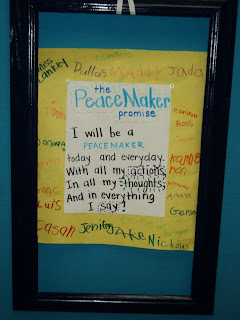 Miss
Lankey
Dallas Maddy Jada
the
PeaceMaker
promise
I will be a
PEACEMAKER
today and everyday.
With all my actions,
In all my thoughts,
And in everything
I say!
Ross
Luis
Casan Jenifer Jake Nicholas